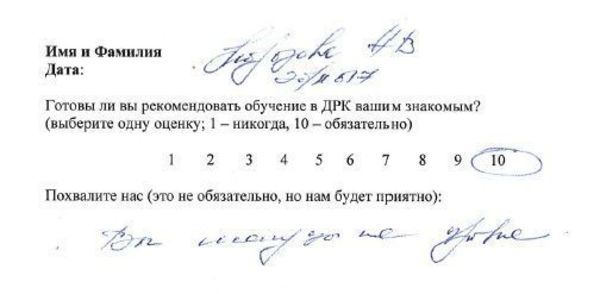 Имя и Фамилия
Дата:
Готовы ли вы рекомендовать обучение в ДРК вашим знакомым?
(выберите одну оценку; 1 – никогда, 10 – обязательно)
1 2 3 4 5 6 7 8 9 10
Похвалите нас (это не обязательно, но нам будет приятно):
Вы на уровне